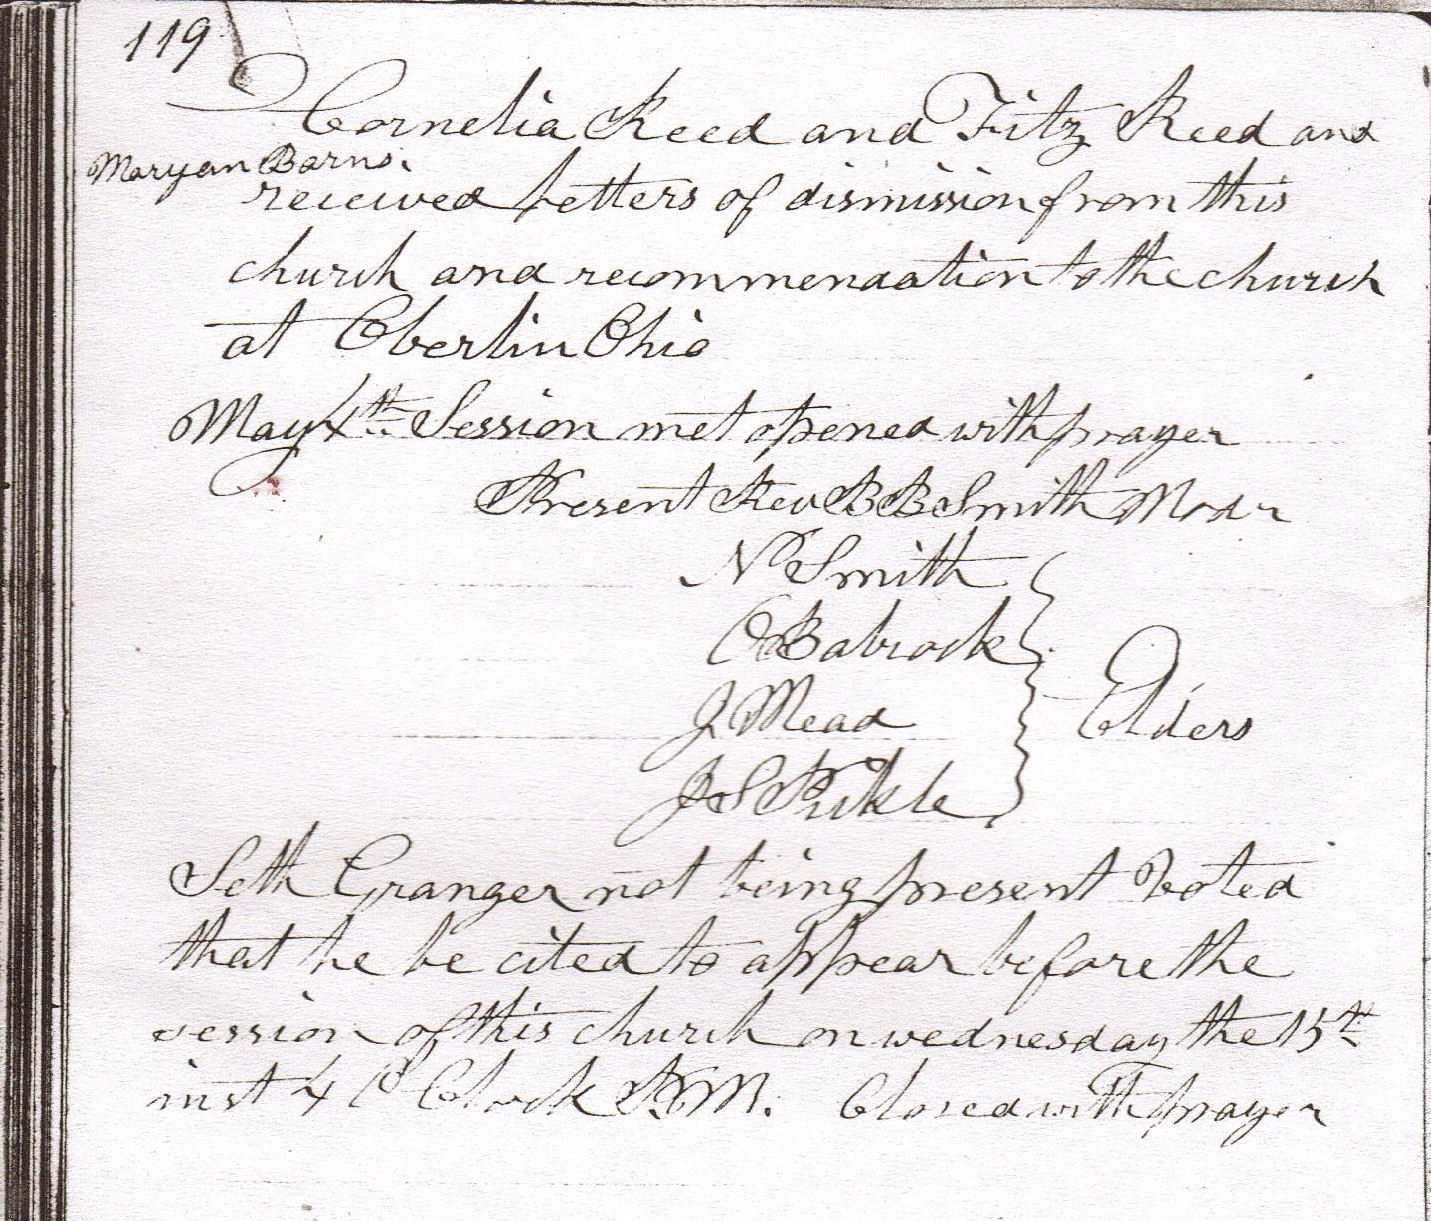 119
Cornelia Reed and Fitz Reed and
Maryan Barns.
received letters of dismission from this
church and recommendation to the church
at Oberlin Ohio
May 4th Session met opened with prayer
Present Rev B B Smith Modr
N Smith
O Babcock
J Mead
Elders
J S Pickle
Seth Granger not being present Voted
that he be cited to appear before the
session of this church on wednesday the 15th
inst 4 O Clock P.M. Closed with prayer